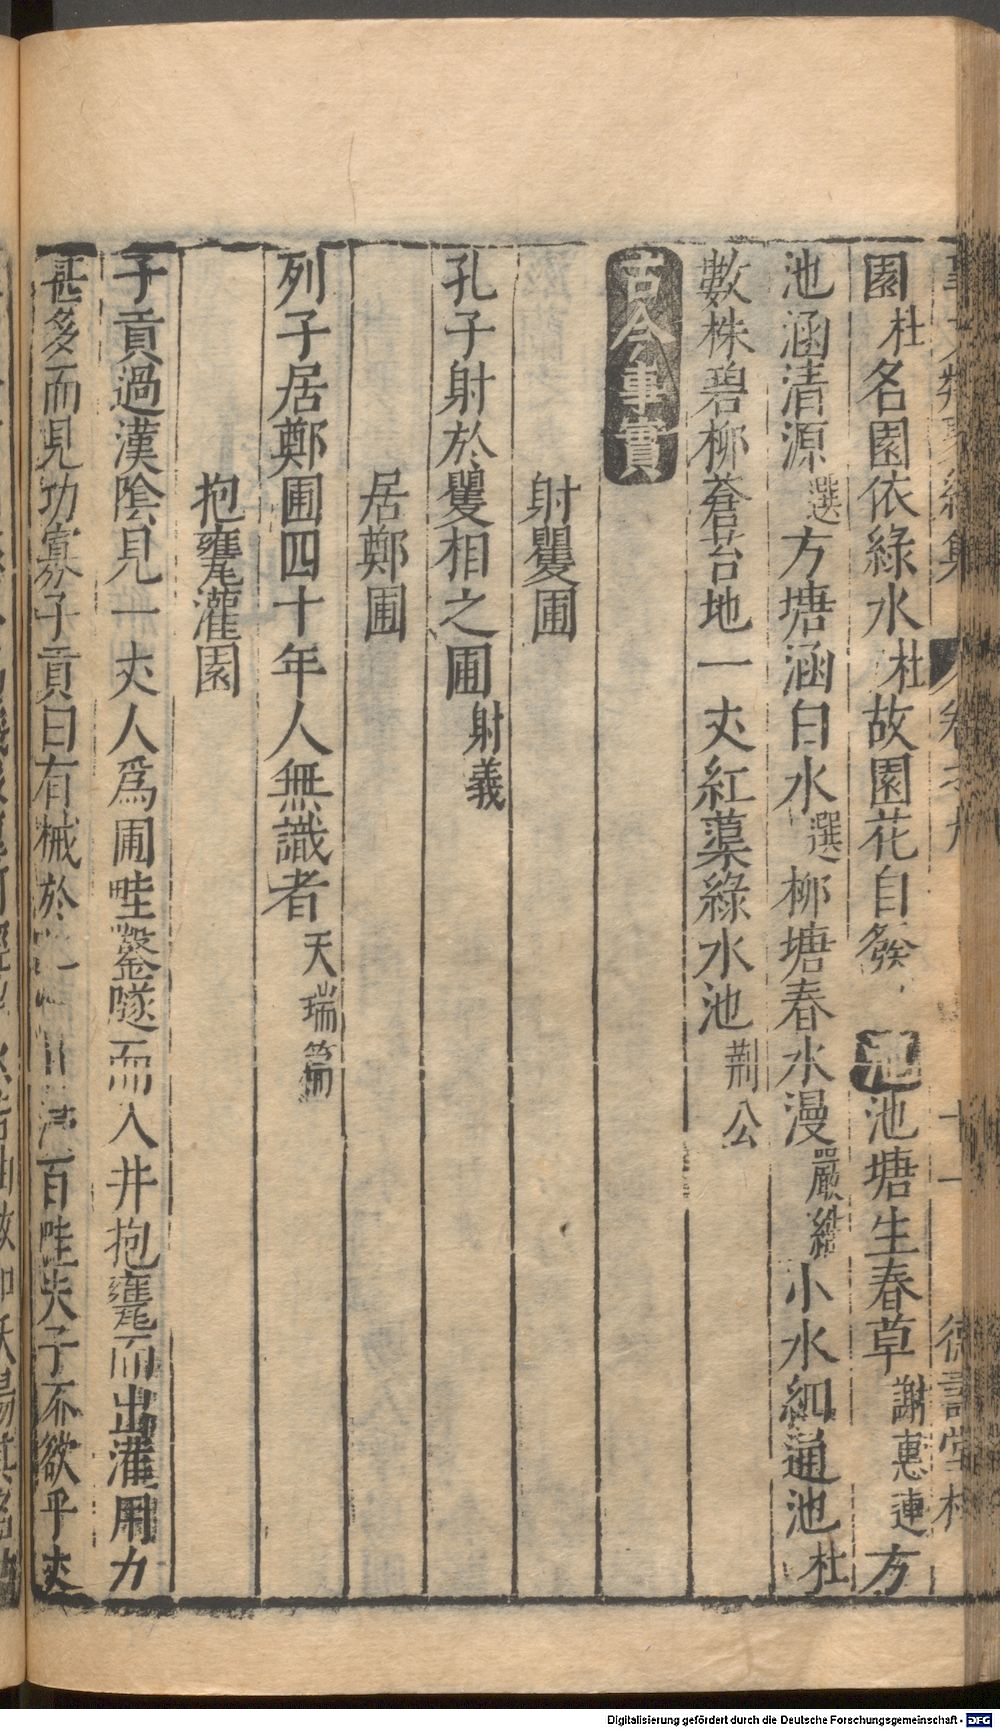 園杜名園依綠水杜故園花自發池池塘生春草謝惠連方
池涵清源選方塘涵白水選柳塘春水漫嚴維小水細通池杜
數株碧柳蒼苔地一丈紅蕖綠水池荆公
古今事實
射矍圃
孔子射於矍相之圃射義
居鄭圃
列子居鄭圃四十年人無識者天瑞篇
抱甕灌園
子貢過漢陰見一丈人爲圃畦鑿隧而入井抱甕而出灌用力
甚多而見功寡子貢曰有械於一日浸百畦夫子不欲乎丈
Digitalisierung gefördert durch die Deutsche Forschungsgemeinschaft - DFG